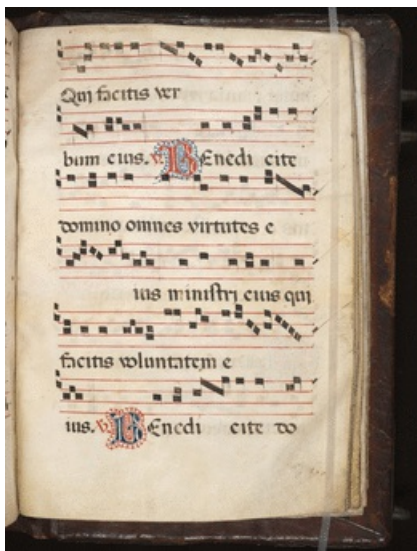 Qui facitis ver
bum eius. V. Benedi cite
domino omnes virtutes e
ius ministri eius qui
facitis voluntatem e
ius. V. Benedi cite do